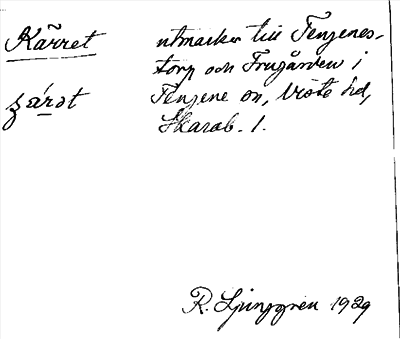 Kärret utmarker till Tengenes-
torp och Frugården i
Tengene sn, Viste hd,
Skarab. l.
R. Ljunggren 1929